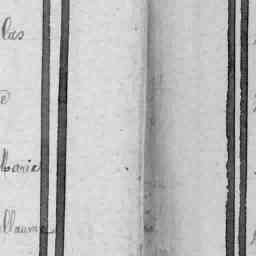 las
e
Marie
llaume